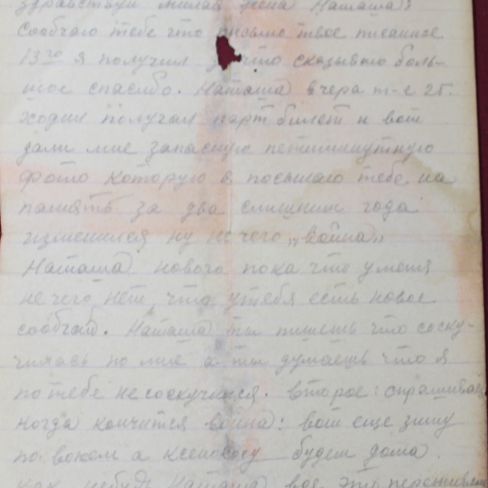 здравствуй милая жена Наташа!
Сообчаю тебе что письмо твое писанное
13го я получил за что сказываю боль-
шое спасибо. Наташа вчера т-е 25.
ходил получал партбилет и вот
дали мне запасную петиминутную
фото которую я посылаю тебе на
память за два слишним года
изменился ну не чего „война„
Наташа нового пока что у меня
не чего нет, что утебя есть новое
сообчай. Наташа ты пишешь что соску-
чилась по мне а ты думаешь что я
по тебе не соскучился. второе: спрашиваешь
когда кончится война: вот еще зиму
по воюем а к сенокосу будем дома.
как небудь Наташа все это